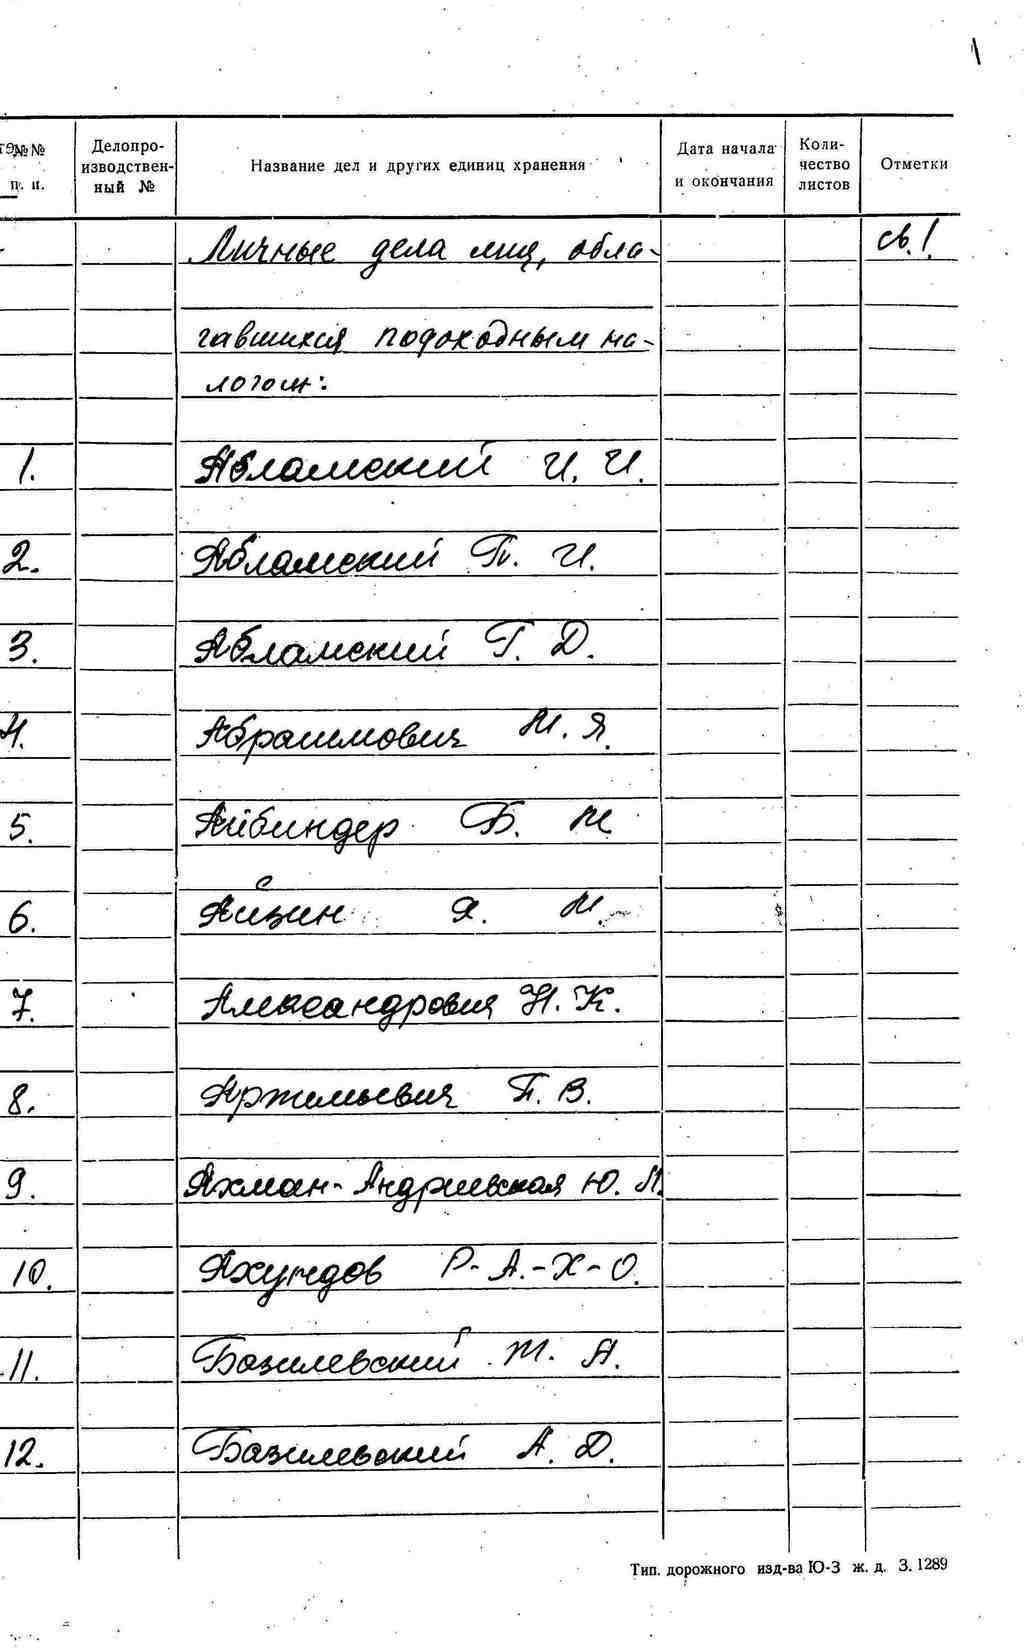 №№ п. п.
Делопроизводственный №
Название дел и других единиц хранения
Дата начала и окончания
Количество листов
Отметки
Личные дела лиц, обла- св. 1
гавшихся подоходным на-
логом:
1. Абламский И. И.
2. Абламский П. И.
3. Абламский Г. Д.
4. Абрашмович М. Я.
5. Айбиндер Б. М.
6. Айзин Я. М.
7. Александрович Н. К.
8. Артимьевич П. В.
9. Ахман-Андриевская Ю. Л.
10. Ахундов Р-А.-Х-О.
11. Базилевский М. А.
12. Базилевский А. Д.
Тип. дорожного изд-ва Ю-З ж. д. З. 1289